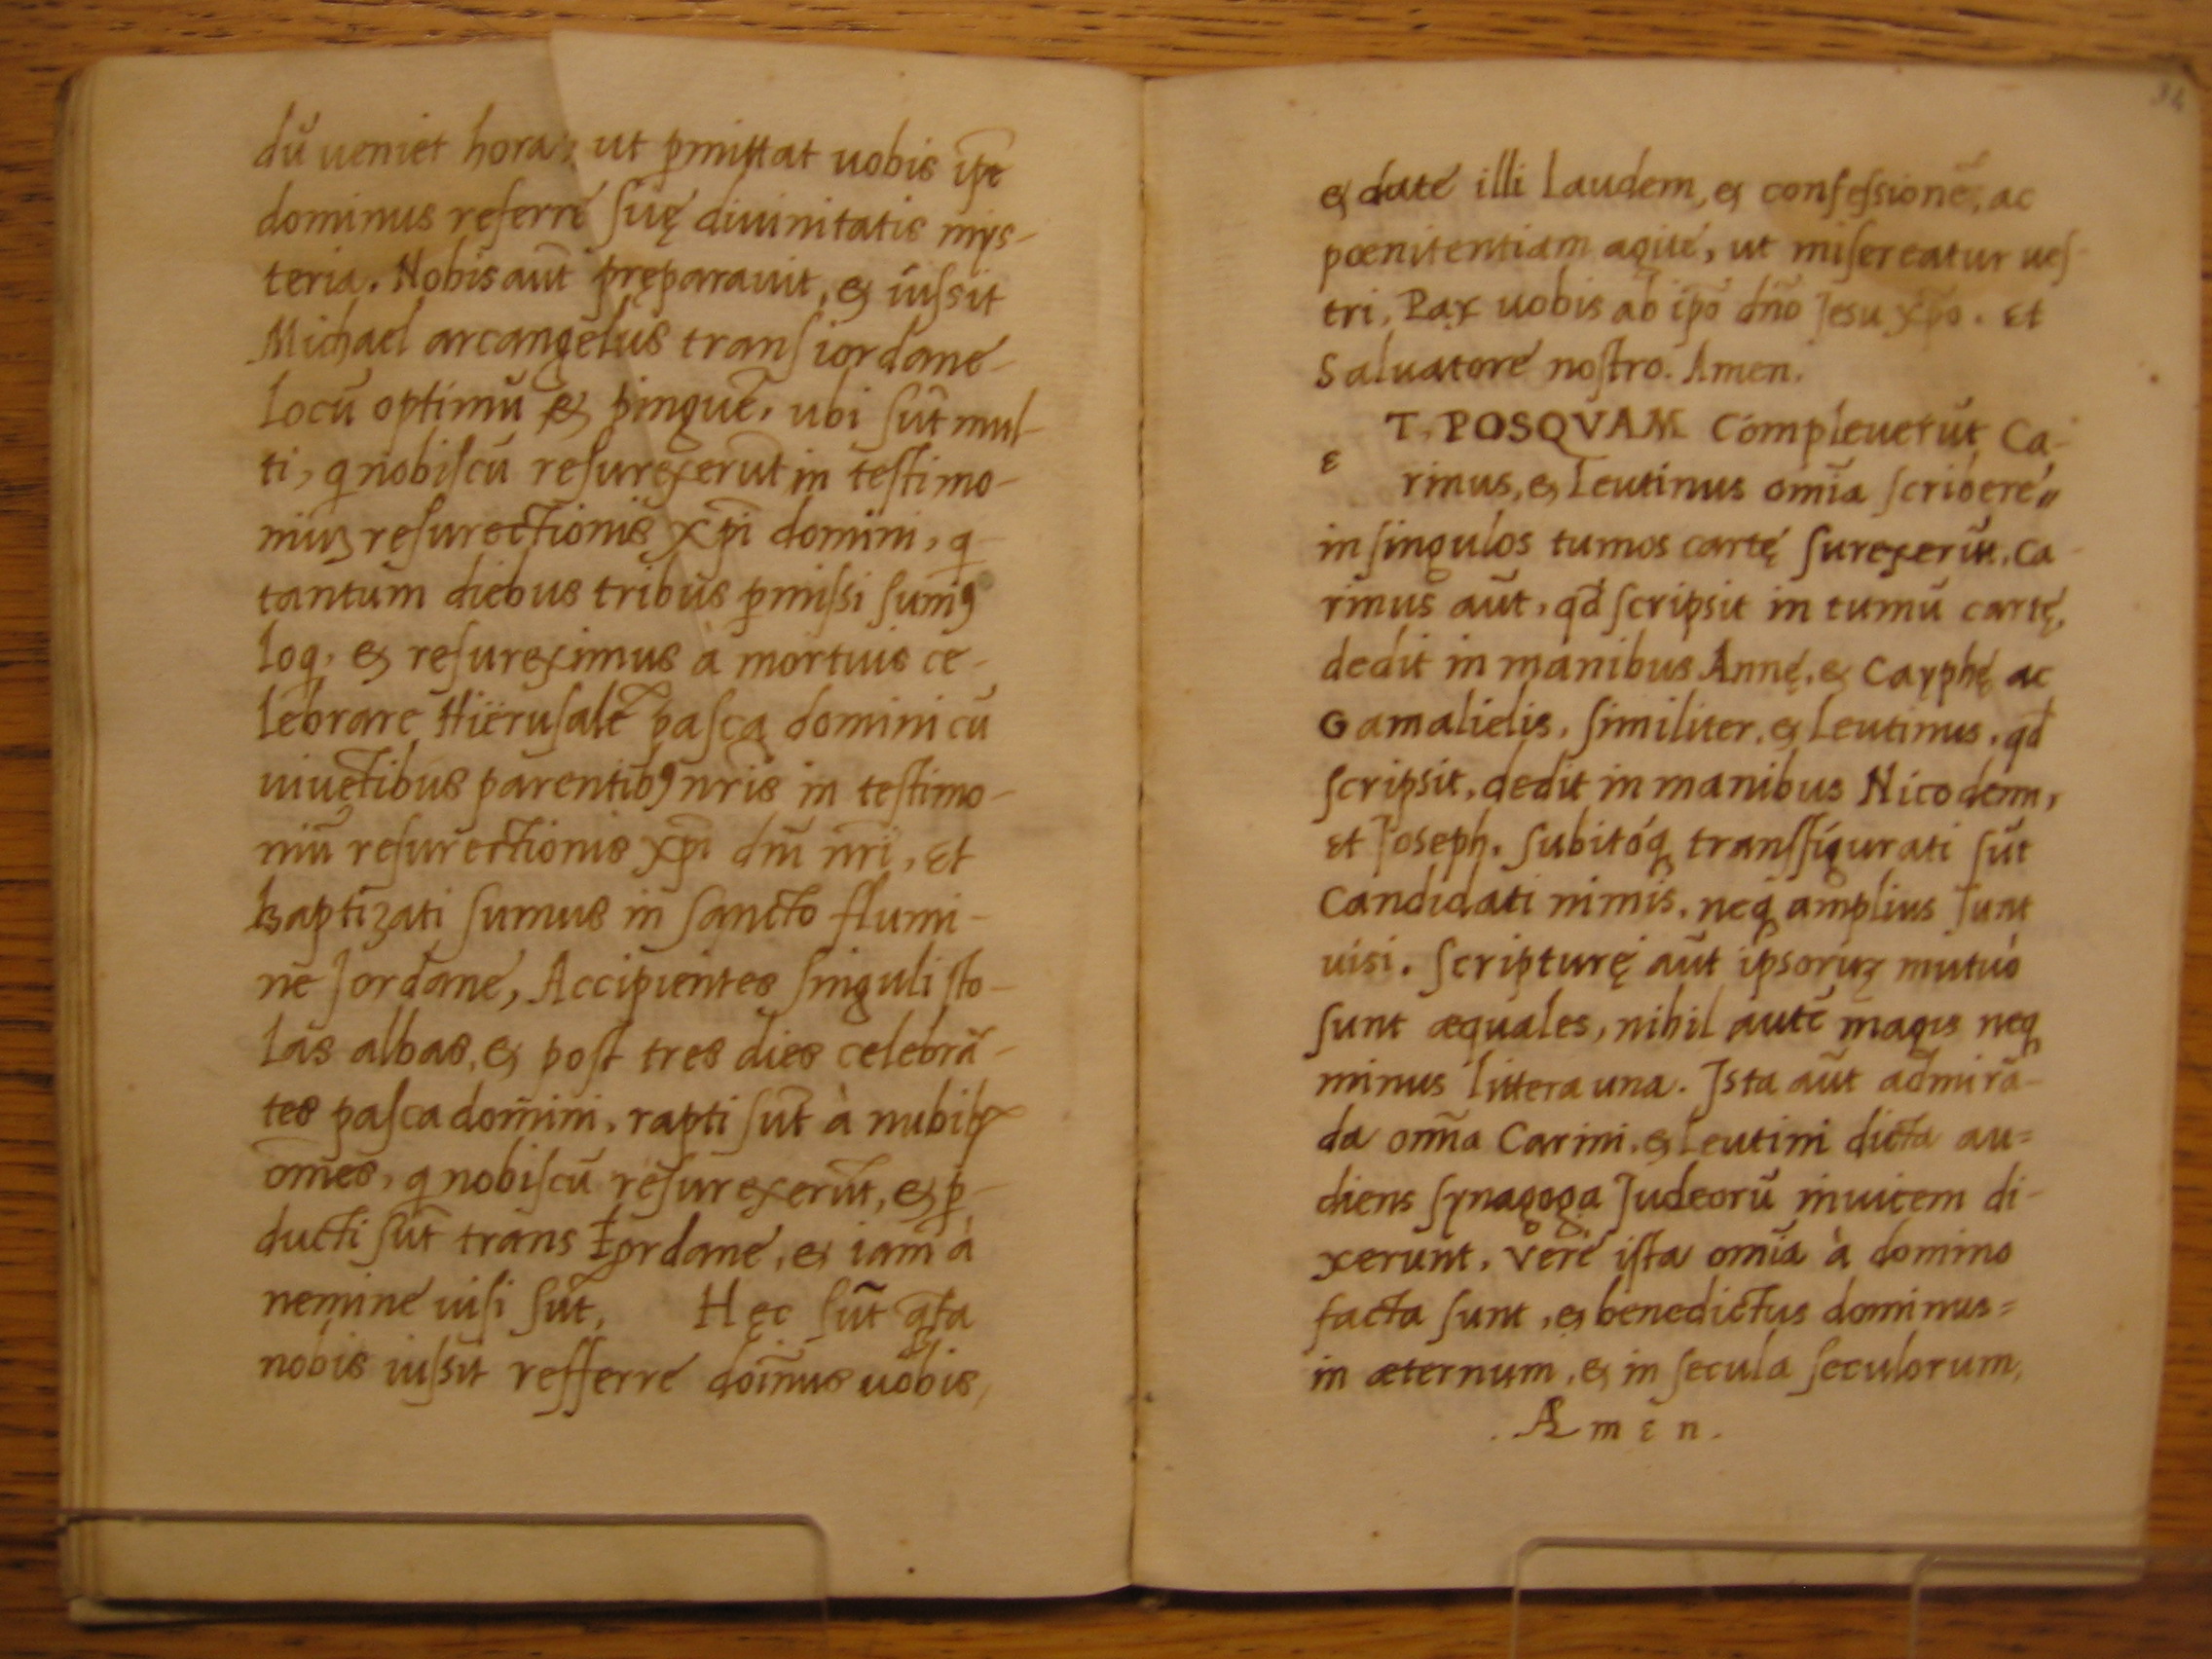 dũ ueniet hora, ut ꝑmittat uobis ip̃e
dominus referre ſuę diuinitatis mys-
teria. Nobis aũt pręparauit, & iuſsit
Michael arcangelus tranſ iordane
locũ optimũ & pinguẽ, ubi ſũt mul-
ti, q nobiſcũ reſurexerũt in teſtimo-
niuꝫ reſurectionis xp̃i domini, q
tantum diebus tribus ꝑmiſsi ſumꝰ
loq, & reſureximus à mortuis ce-
lebrare Hierusalẽ paſca dominicũ
uiuẽtibus parentibꝰ nr̃is in teſtimo-
niũ reſurectionis xp̃i dñi nr̃i, Et
baptizati ſumus in ſancto flumi-
ne Jordane, Accipientes ſinguli ſto-
las albas, & poſt tres dies celebrã-
tes paſca domini, rapti ſũt à nubibꝰ
om̃es, q nobiſcũ reſurexerũt, & ꝑ-
ducti ſũt trans Iordane, & iam à
nemine uiſi ſũt, Hęc ſũt q̃ſta
nobis iuſsit refferre doĩnus uobis,
34
& date illi laudem, & confeſsionẽ, ac
pœnitentiam agite, ut miſereatur ueſ-
tri, Pax uobis ab ip̃o dño Jesu xp̃o. Et
Saluatore noſtro. Amen.
ET. POSQVAM Compleuerũt Ca-
rinus, & Leutinus om̃ia ſcribere
in ſingulos tumos cartę ſurexerũt. Ca-
rinus aũt, qd ſcripsit in tumũ cartę,
dedit in manibus Annę, & Cayphę ac
Gamalielis, ſimiliter, & Leutinus, qd
ſcripsit, dedit in manibus Nicodemi,
Et Joseph. Subitóq tranſfigurati ſũt
Candidati nimis, neq amplius ſunt
uisi. Scripturę aũt ipsoruꝫ mutuò
ſunt æquales, nihil autẽ magis neq
minus littera una. Ista aũt admirã-
da omña Carini, & Leutini dicta au=
diens ſynagoga Judeorũ inuicem di-
xerunt. Verè iſta omĩa à domino
facta ſunt, & benedictus dominus=
in æternum, & in ſecula ſeculorum,
. A m ε n .